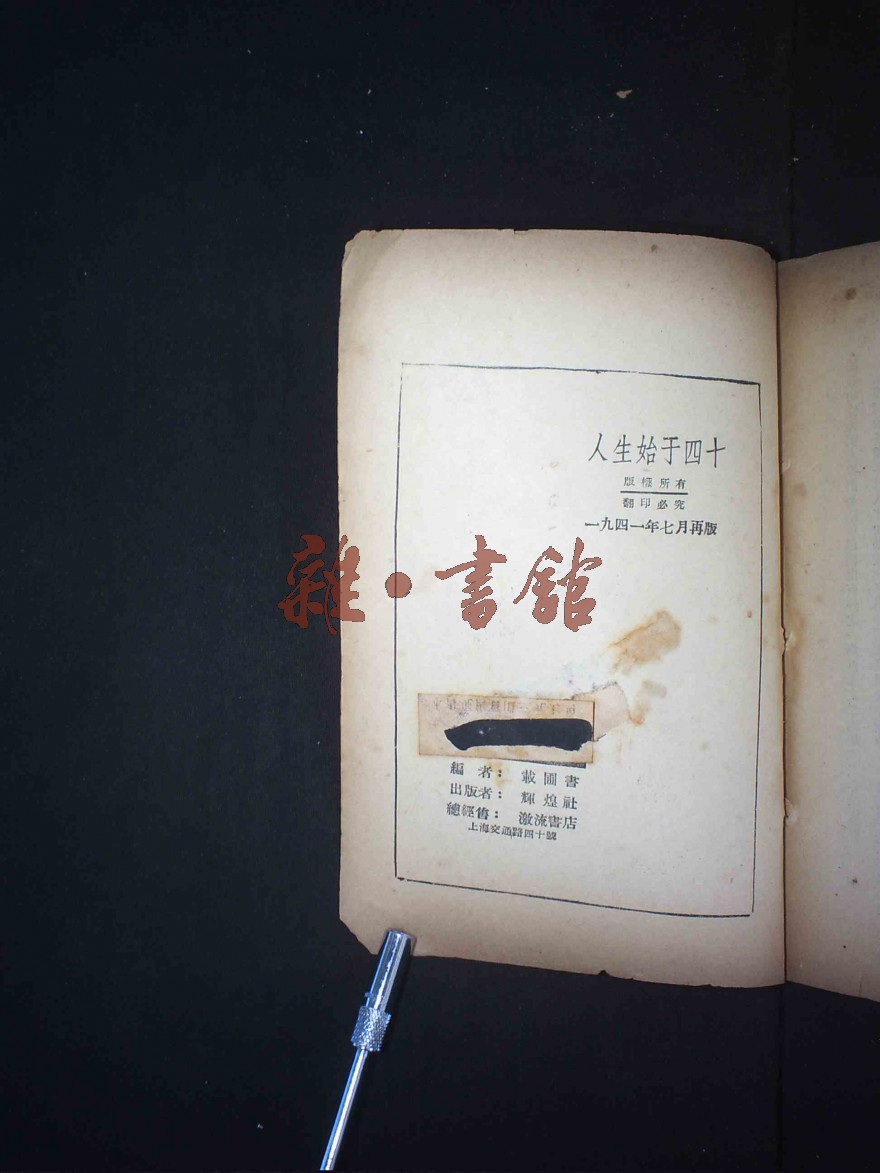 人生始于四十
版權所有
翻印必究
一九四一年七月再版
雜·書館
編者：載圃書
出版者：輝煌社
總經售：激流書店
上海交通路四十號